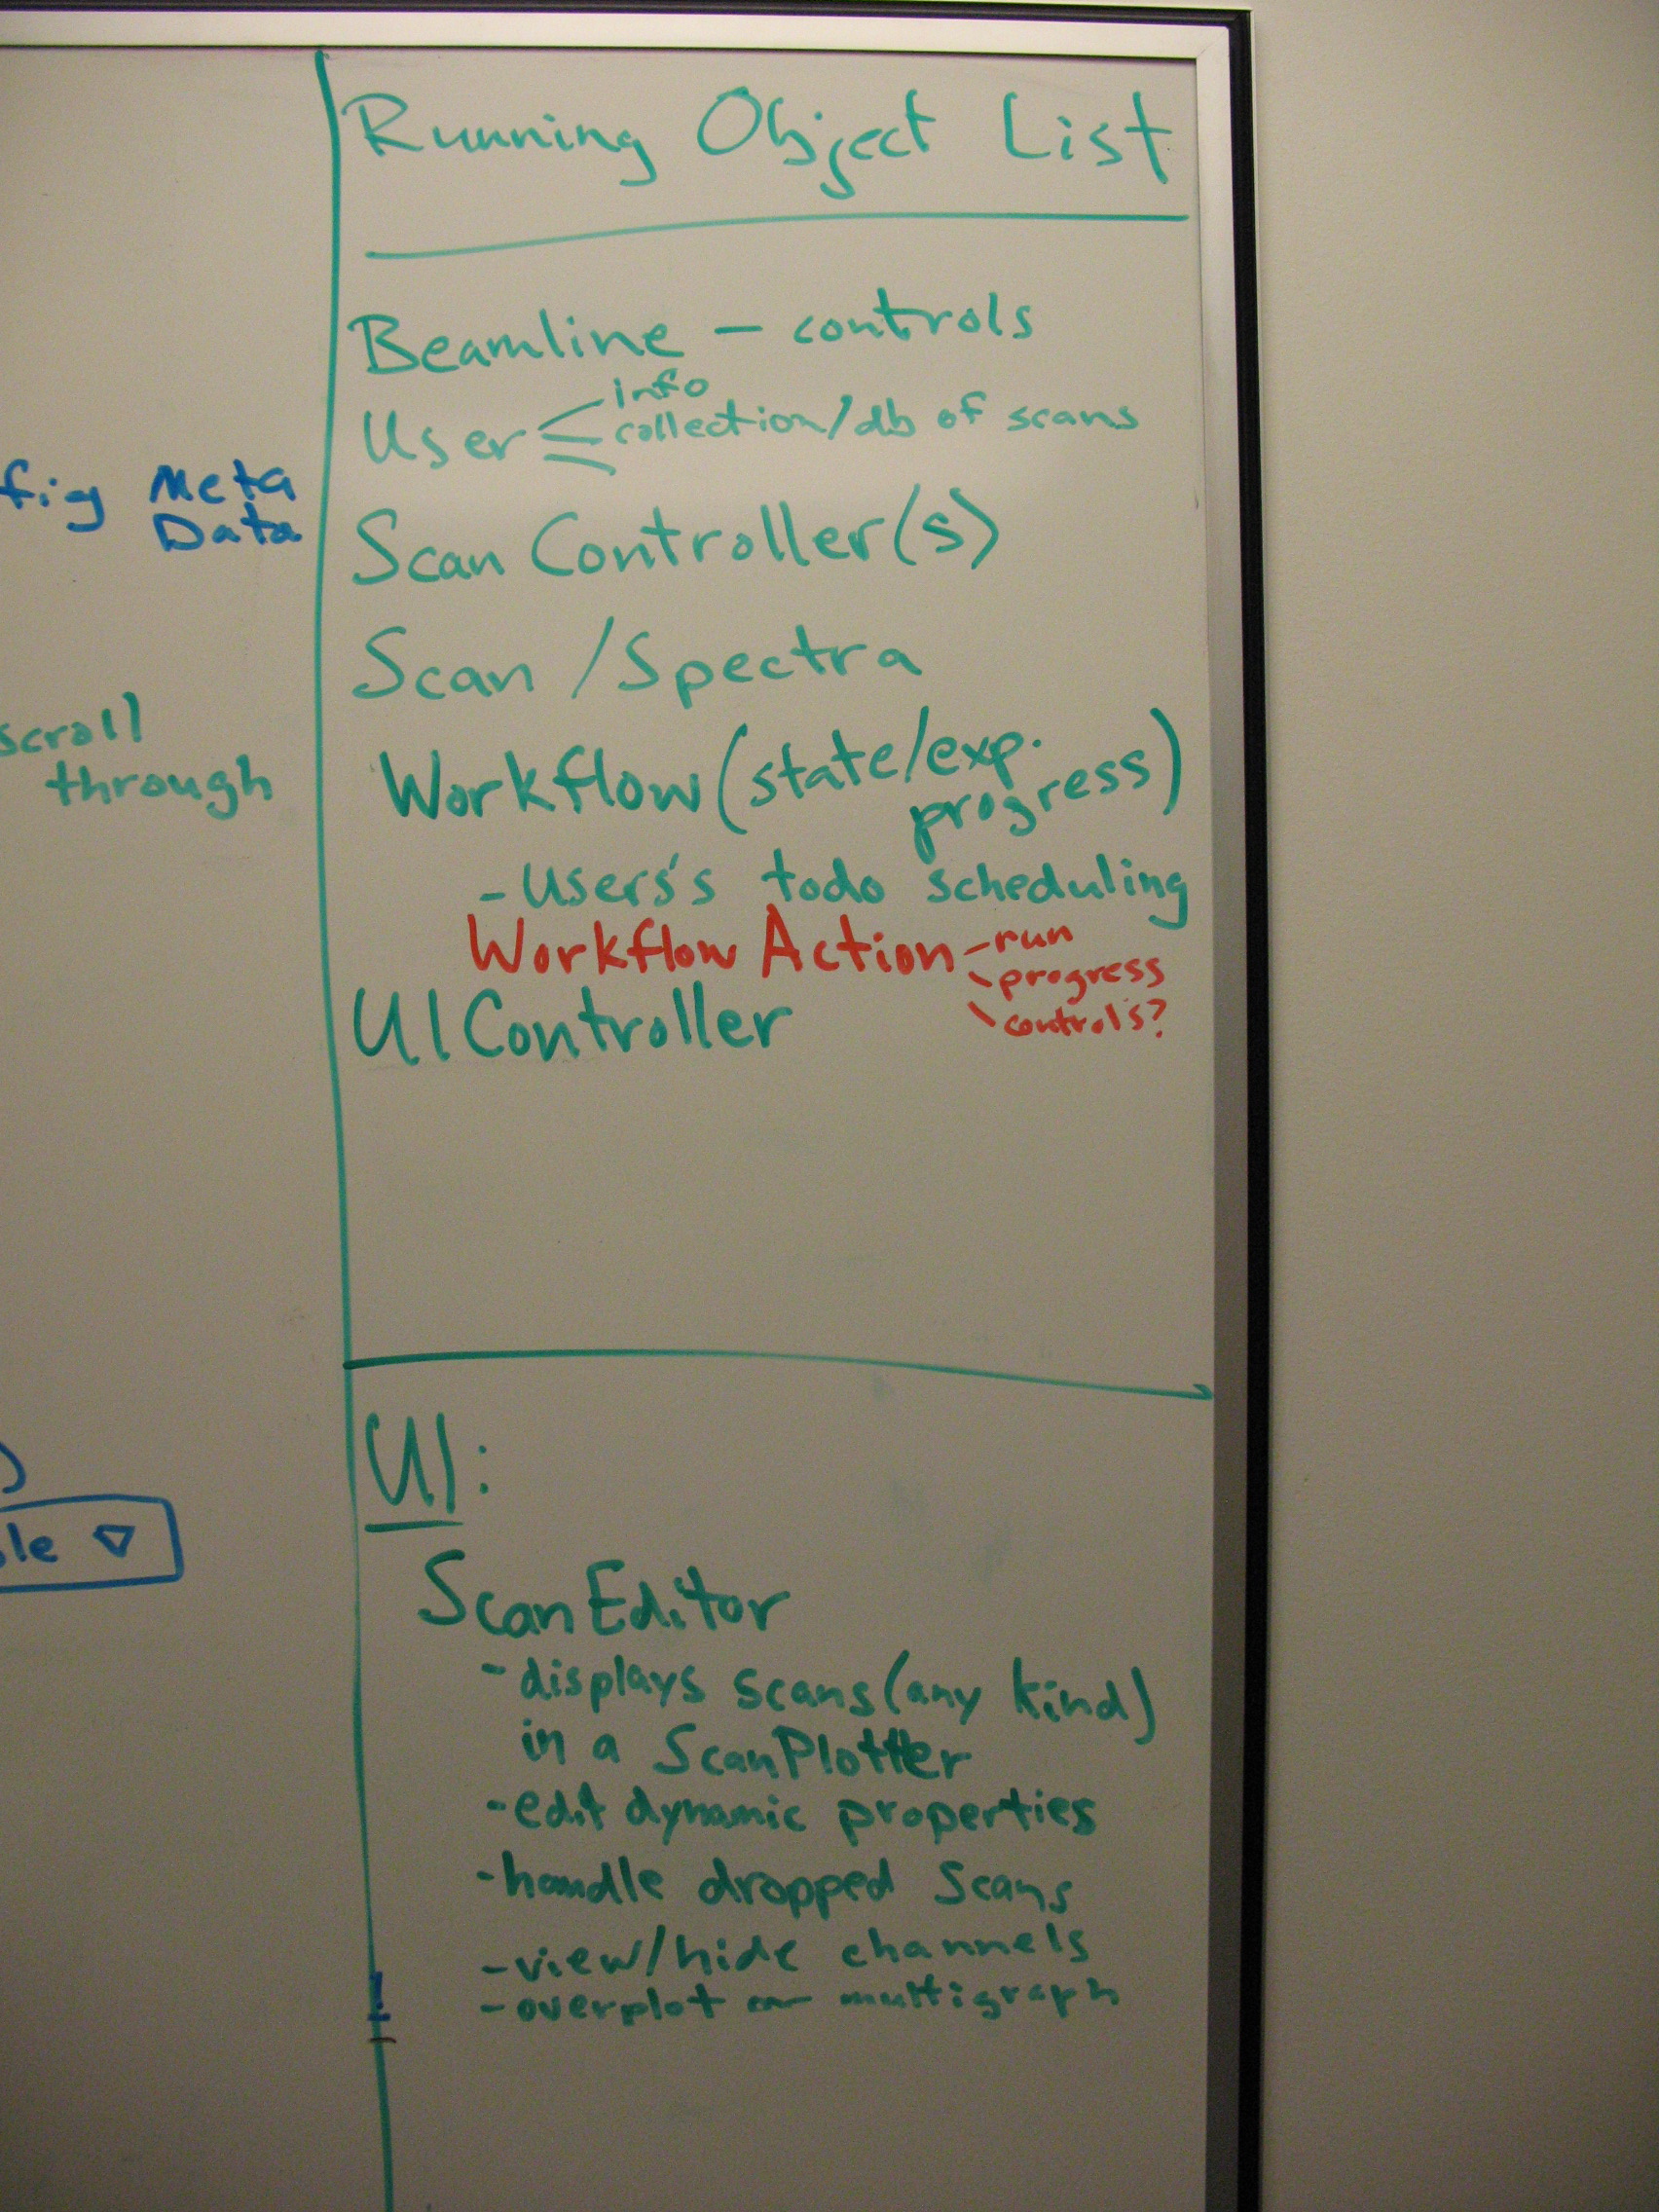 Running Object List
Beamline - controls
info
User
collection/db of scans
fig Meta
Data
Scan Controller(s)
Scan / Spectra
scroll
through
Workflow (state/exp.
progress)
- Users's todo scheduling
Workflow Action
- run
- progress
- controls?
UI Controller
UI:
ScanEditor
- displays scans (any kind)
in a ScanPlotter
- edit dynamic properties
- handle dropped scans
- view/hide channels
- overplot or multigraph